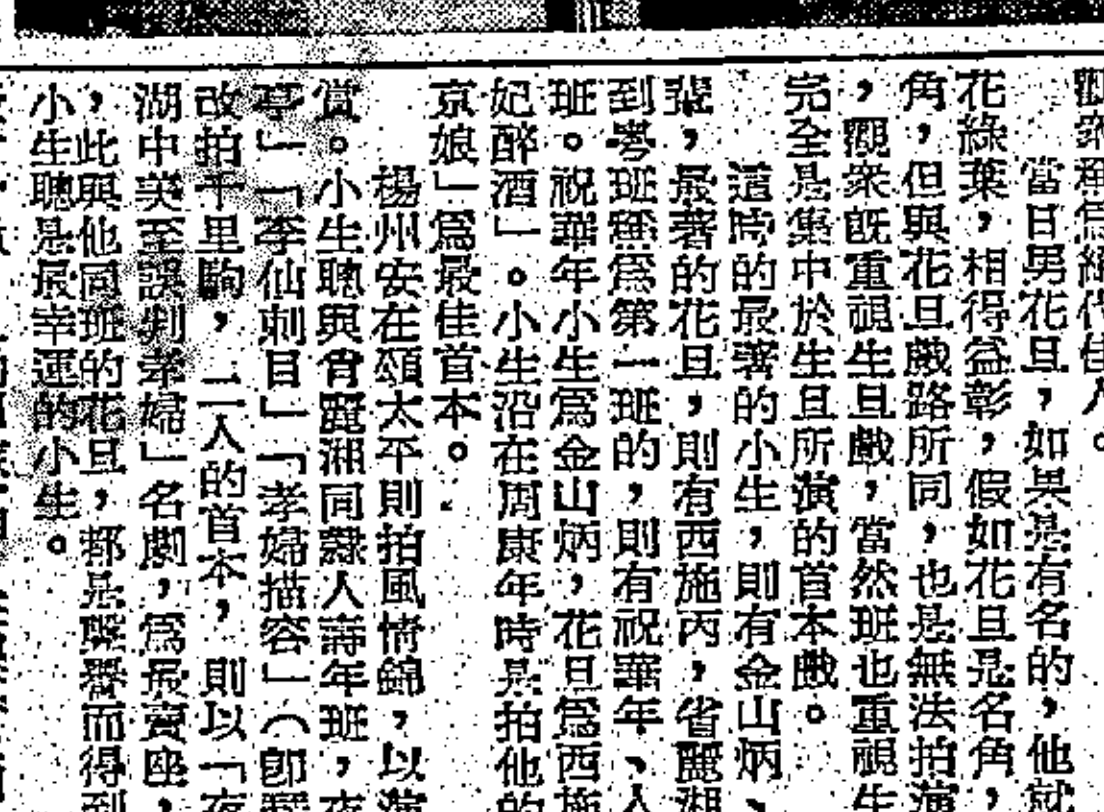 觀衆稱爲絕代佳人。
當日男花旦,如果是有名的,他就
花綠葉,相得益彰,假如花旦是名角,
角,但與花旦戲路所同,也是無法拍演
,觀衆旣重視生旦戲,當然班也重視生
完全是集中於生旦所演的首本戲。
這時的最著的小生,則有金山炳、
輩,最著的花旦,則有西施丙,省麗湖
到粵班爲第一班的,則有祝華年、人
班。祝華年小生爲金山炳,花旦爲西施
妃醉酒」。小生沿在周康年時是拍他的
京娘」爲最佳首本。
楊州安在頌太平則拍風情錦,以演
賞。小生聰與肖麗湘同隸人壽年班,夜
亭」「李仙刺目」「孝婦描容」(卽琵
改拍千里駒,二人的首本,則以「夜
湖中美至誤判孝婦」名劇,爲最賣座,
,此與他同班的花旦,都是聲譽而得到
小生聰是最幸運的小生。